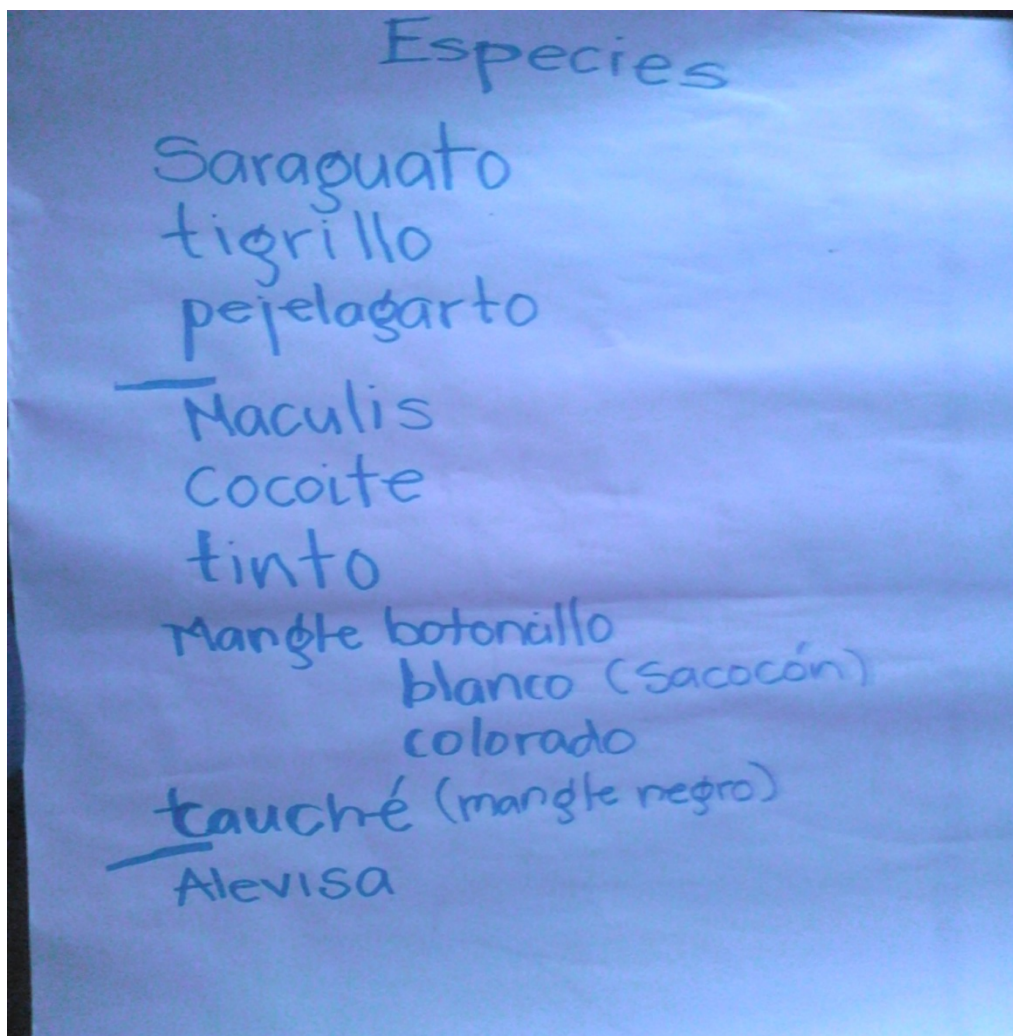 Especies
Saraguato
tigrillo
pejelagarto
Maculis
Cocoite
tinto
Mangle botoncillo
blanco (Sacocón)
colorado
tauché (mangle negro)
Alevisa